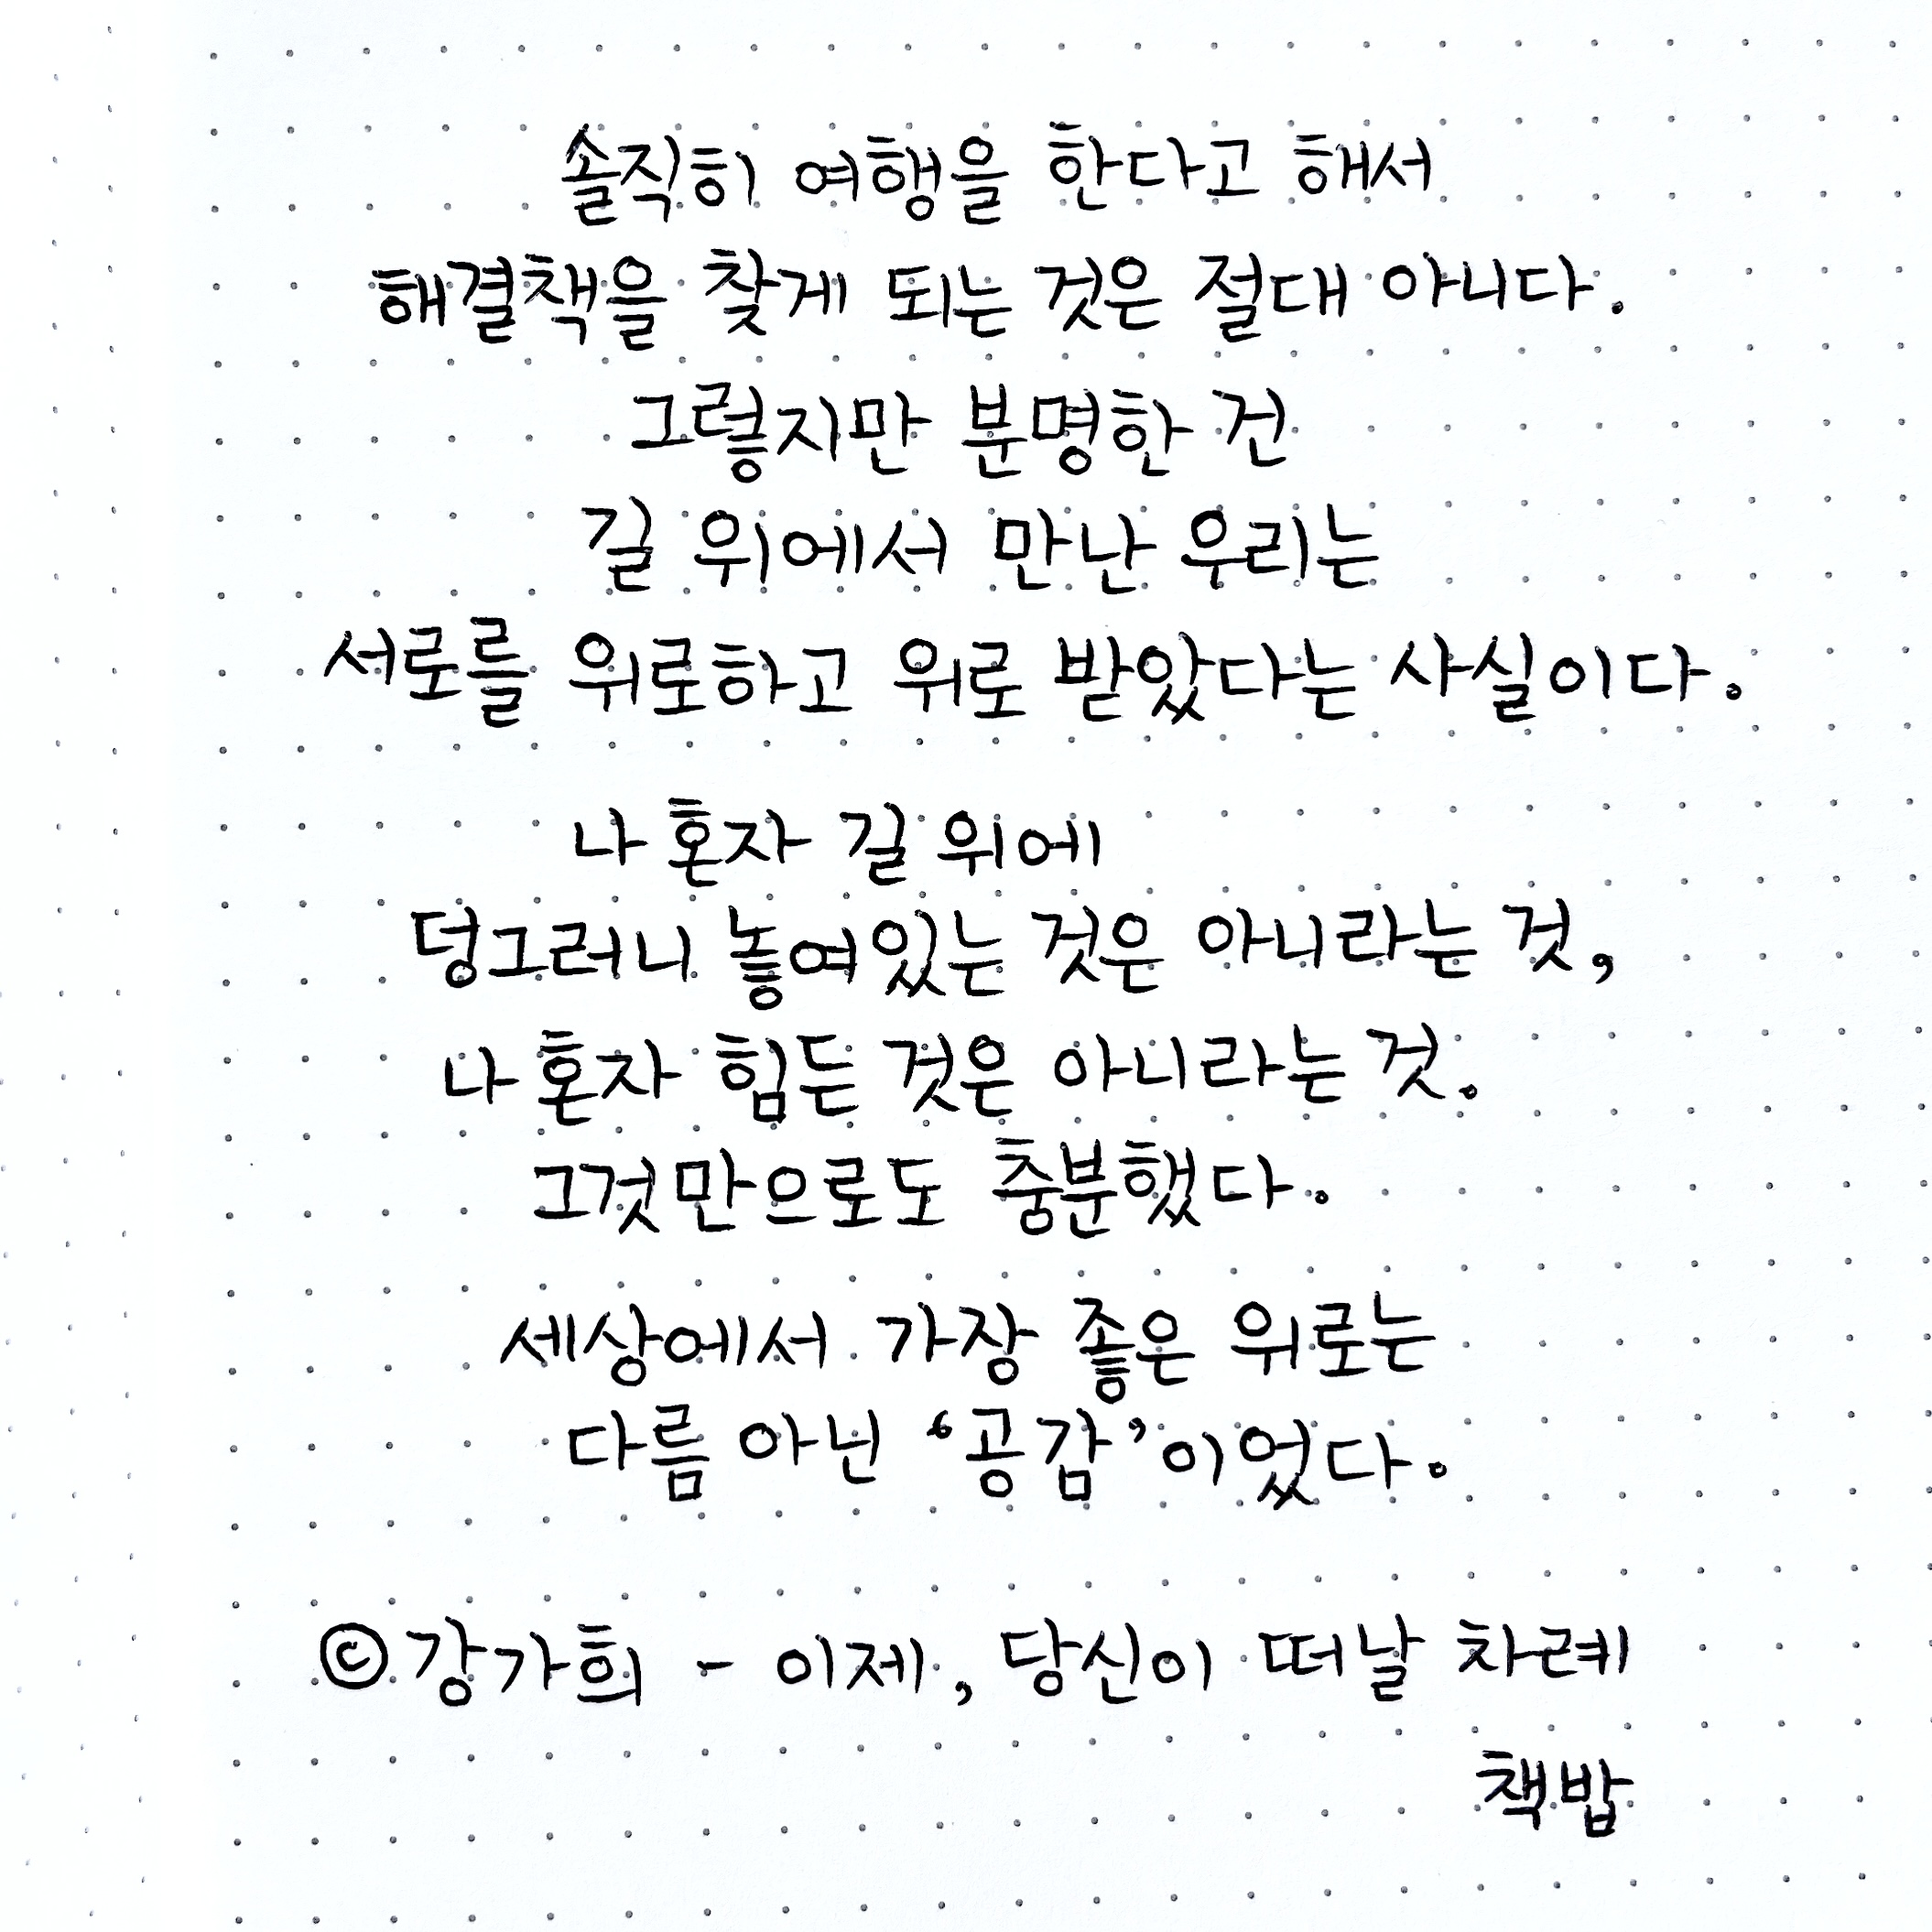 솔직히 여행을 한다고 해서
해결책을 찾게 되는 것은 절대 아니다.
그렇지만 분명한 건
길 위에서 만난 우리는
서로를 위로하고 위로 받았다는 사실이다.
나 혼자 길 위에
덩그러니 놓여있는 것은 아니라는 것,
나 혼자 힘든 것은 아니라는 것.
그것만으로도 충분했다.
세상에서 가장 좋은 위로는
다름 아닌 ‘공감’이었다.
©강가희 - 이제, 당신이 떠날 차례
책밥